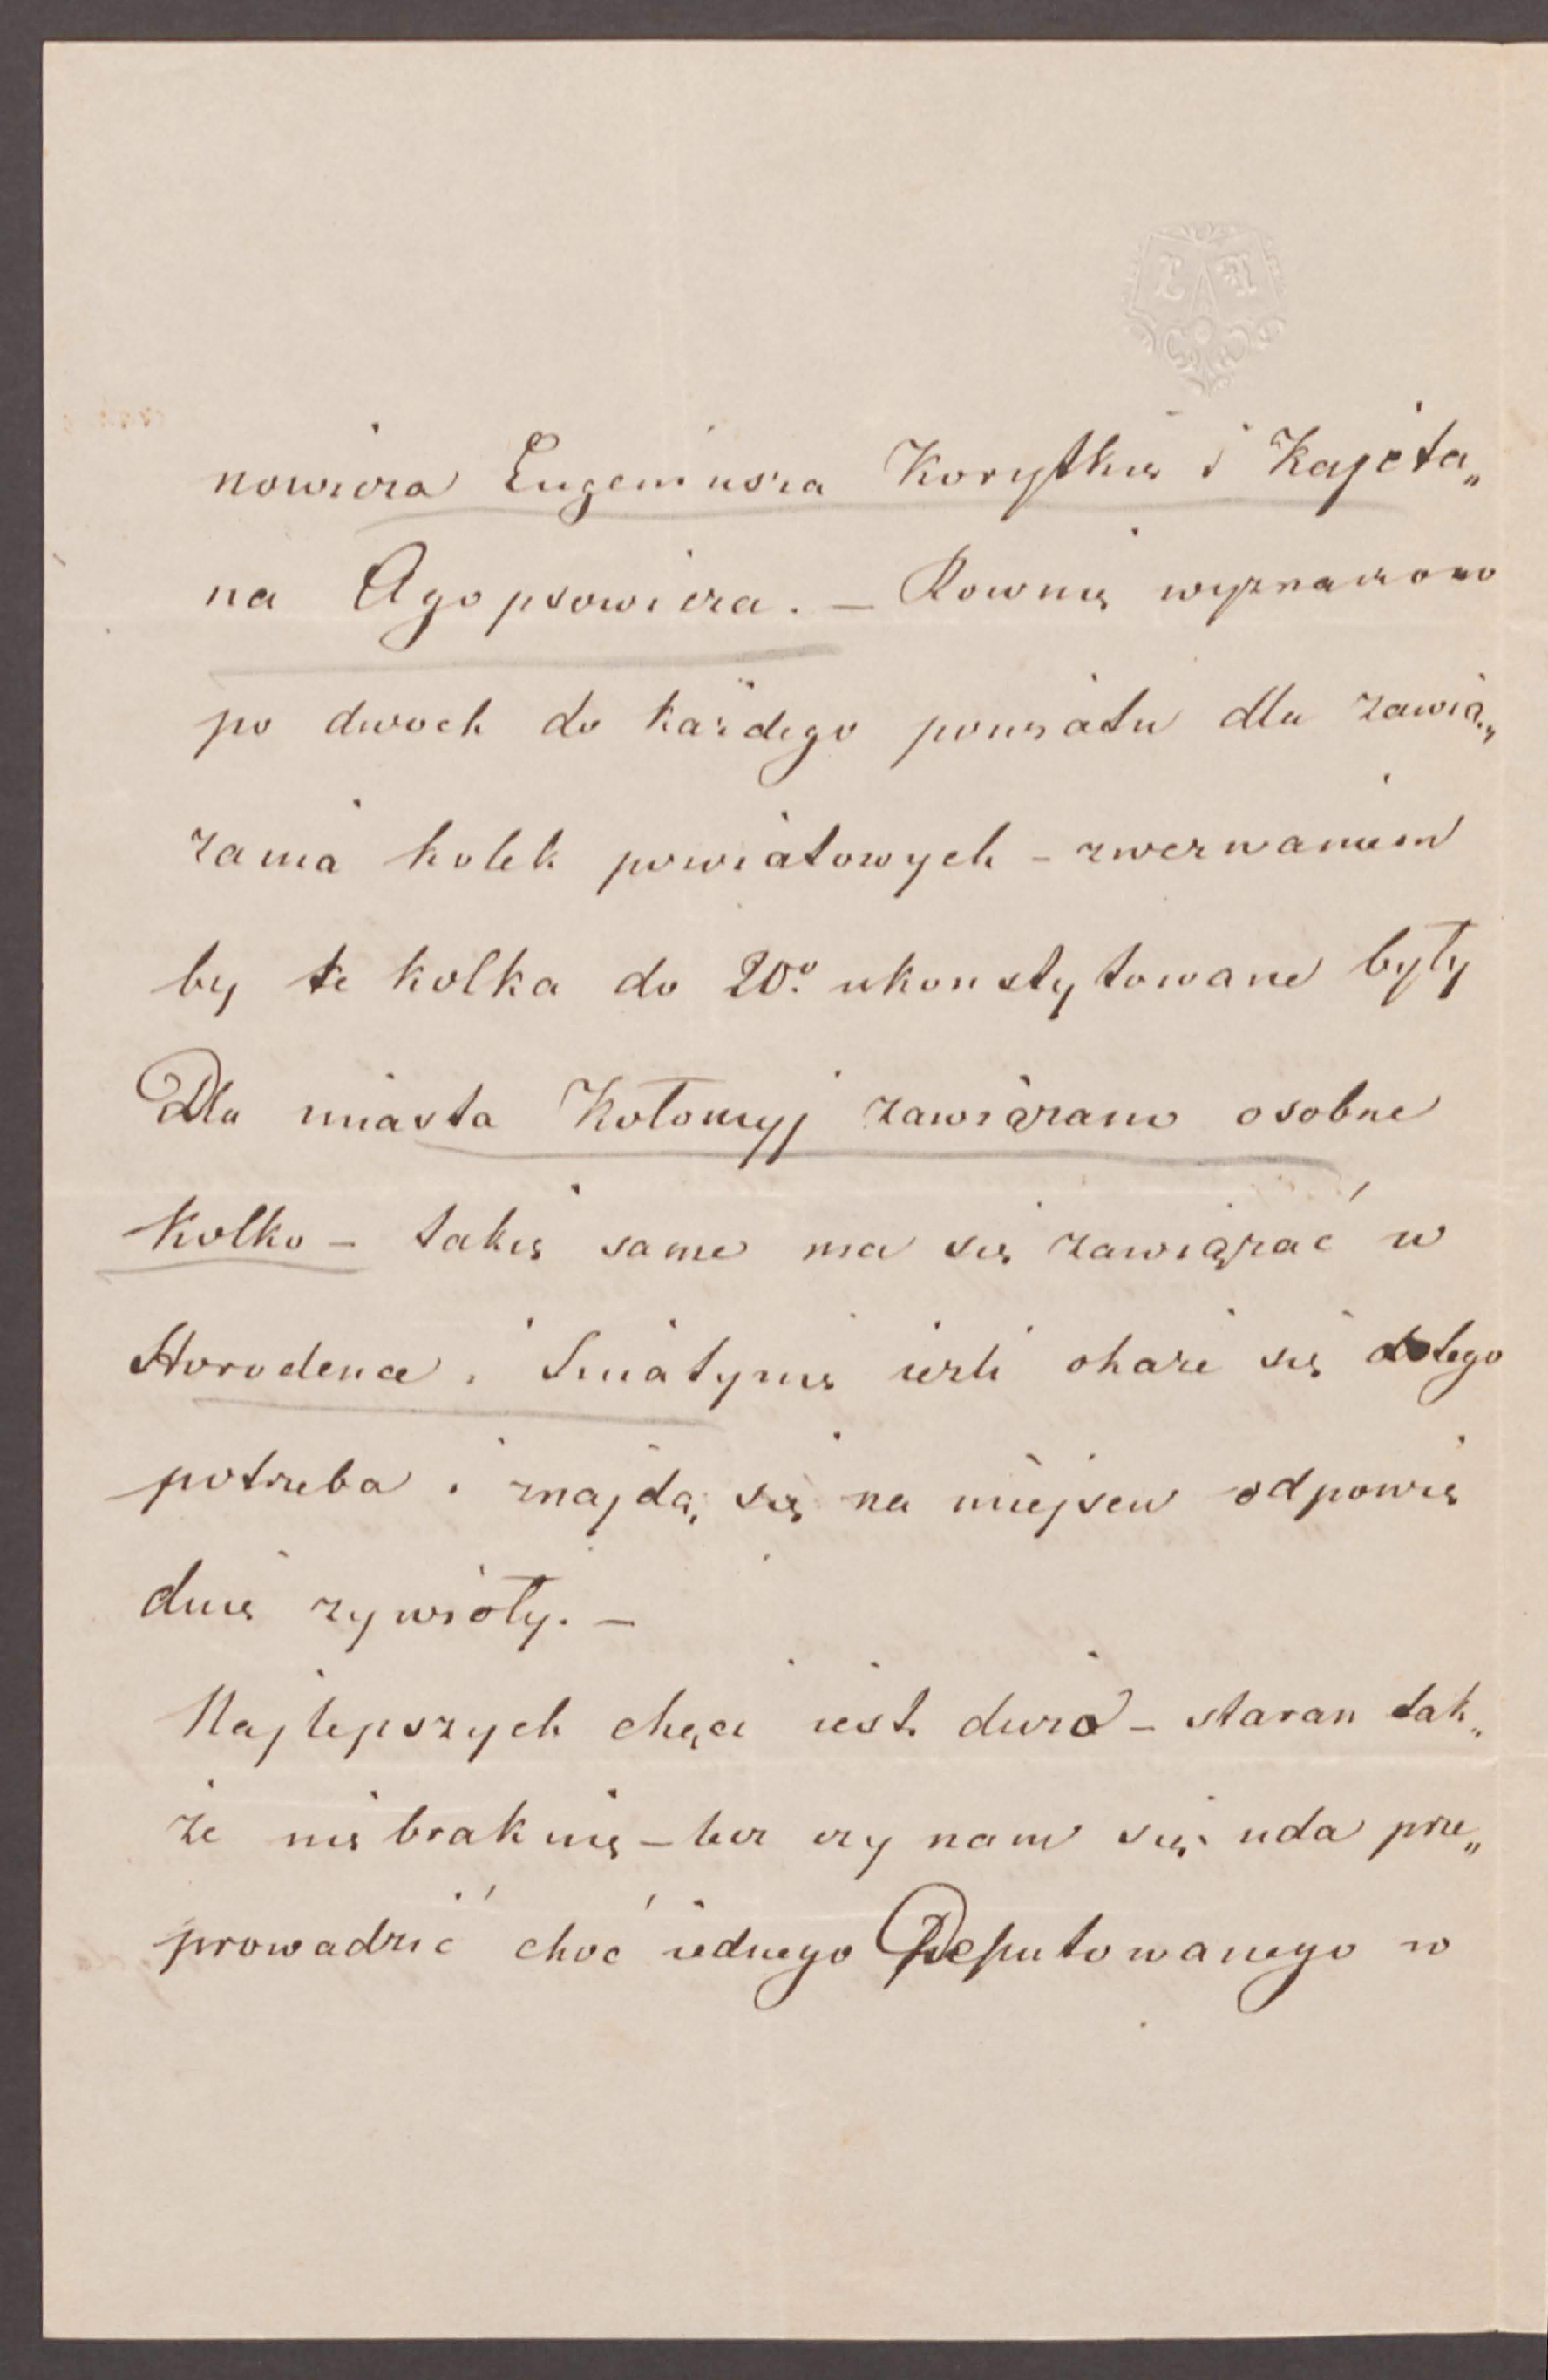 nowicza Eugeniusza Korytkę i Kajeta„
na Agopsowicza. – Rownie wyznaczono
po dwoch do każdego powiatu dla zawią„
zania kolek powiatowych – z wezwaniem
by te kolka do 20º ukonstytowane były
Dla miasta Kołomyj zawiązano osobne
kolko – takie same ma się zawiązać w
Horodence i Sniatynie iezli okaze się do tego
potrzeba i znajdą się na miejscu odpowie
dnie zywioły. –
Najlepszych chęci iest duzo – staran tak„
że nie braknie – lecz czy nam się uda prze„
prowadzić choć iednego Deputowanego w